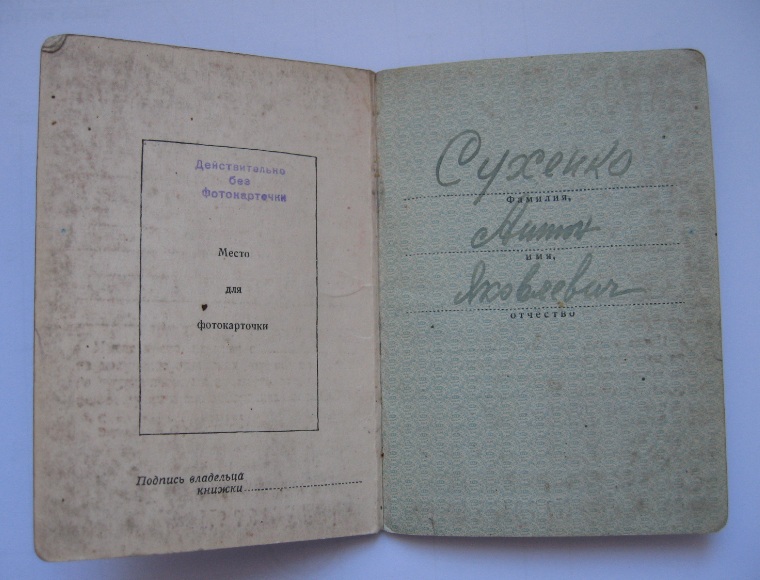 Действительно
без
Фотокарточки
Место
для
фотокарточки
Подпись владельца
книжки
Сухенко
Фамилия,
Антон
имя,
Яковлевич
отчество